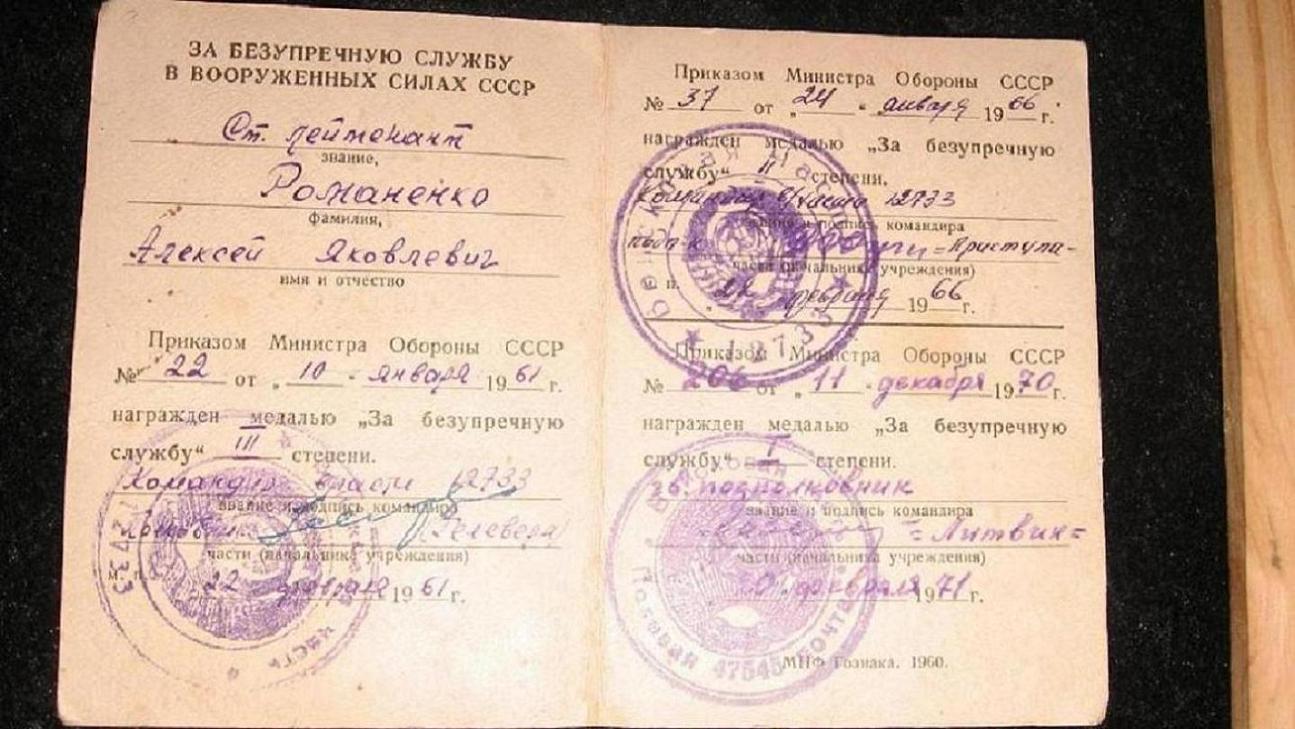 ЗА БЕЗУПРЕЧНУЮ СЛУЖБУ
В ВООРУЖЕННЫХ СИЛАХ СССР
Ст. лейтенант
звание,
Романенко
фамилия,
Алексей Яковлевич
имя и отчество
Приказом Министра Обороны СССР
№ 22 от „10" января 1961 г.
награжден медалью „За безупречную
службу" III степени.
Командир части 12733
звание и подпись командира
части (начальника учреждения)
22 февраля 1961 г.
Приказом Министра Обороны СССР
№ 37 от „24" января 1966 г.
награжден медалью „За безупречную
службу" II степени.
Командир в/части 12733
звание и подпись командира
=Приступа-
части (начальника учреждения)
22 февраля 1966 г.
Приказом Министра Обороны СССР
№ 206 от „11" декабря 1970 г.
награжден медалью „За безупречную
службу" I степени.
гв. подполковник
звание и подпись командира
=Литвин=
части (начальника учреждения)
февраля 1971 г.
Полевая почта 47545
МПФ Гознака. 1960.